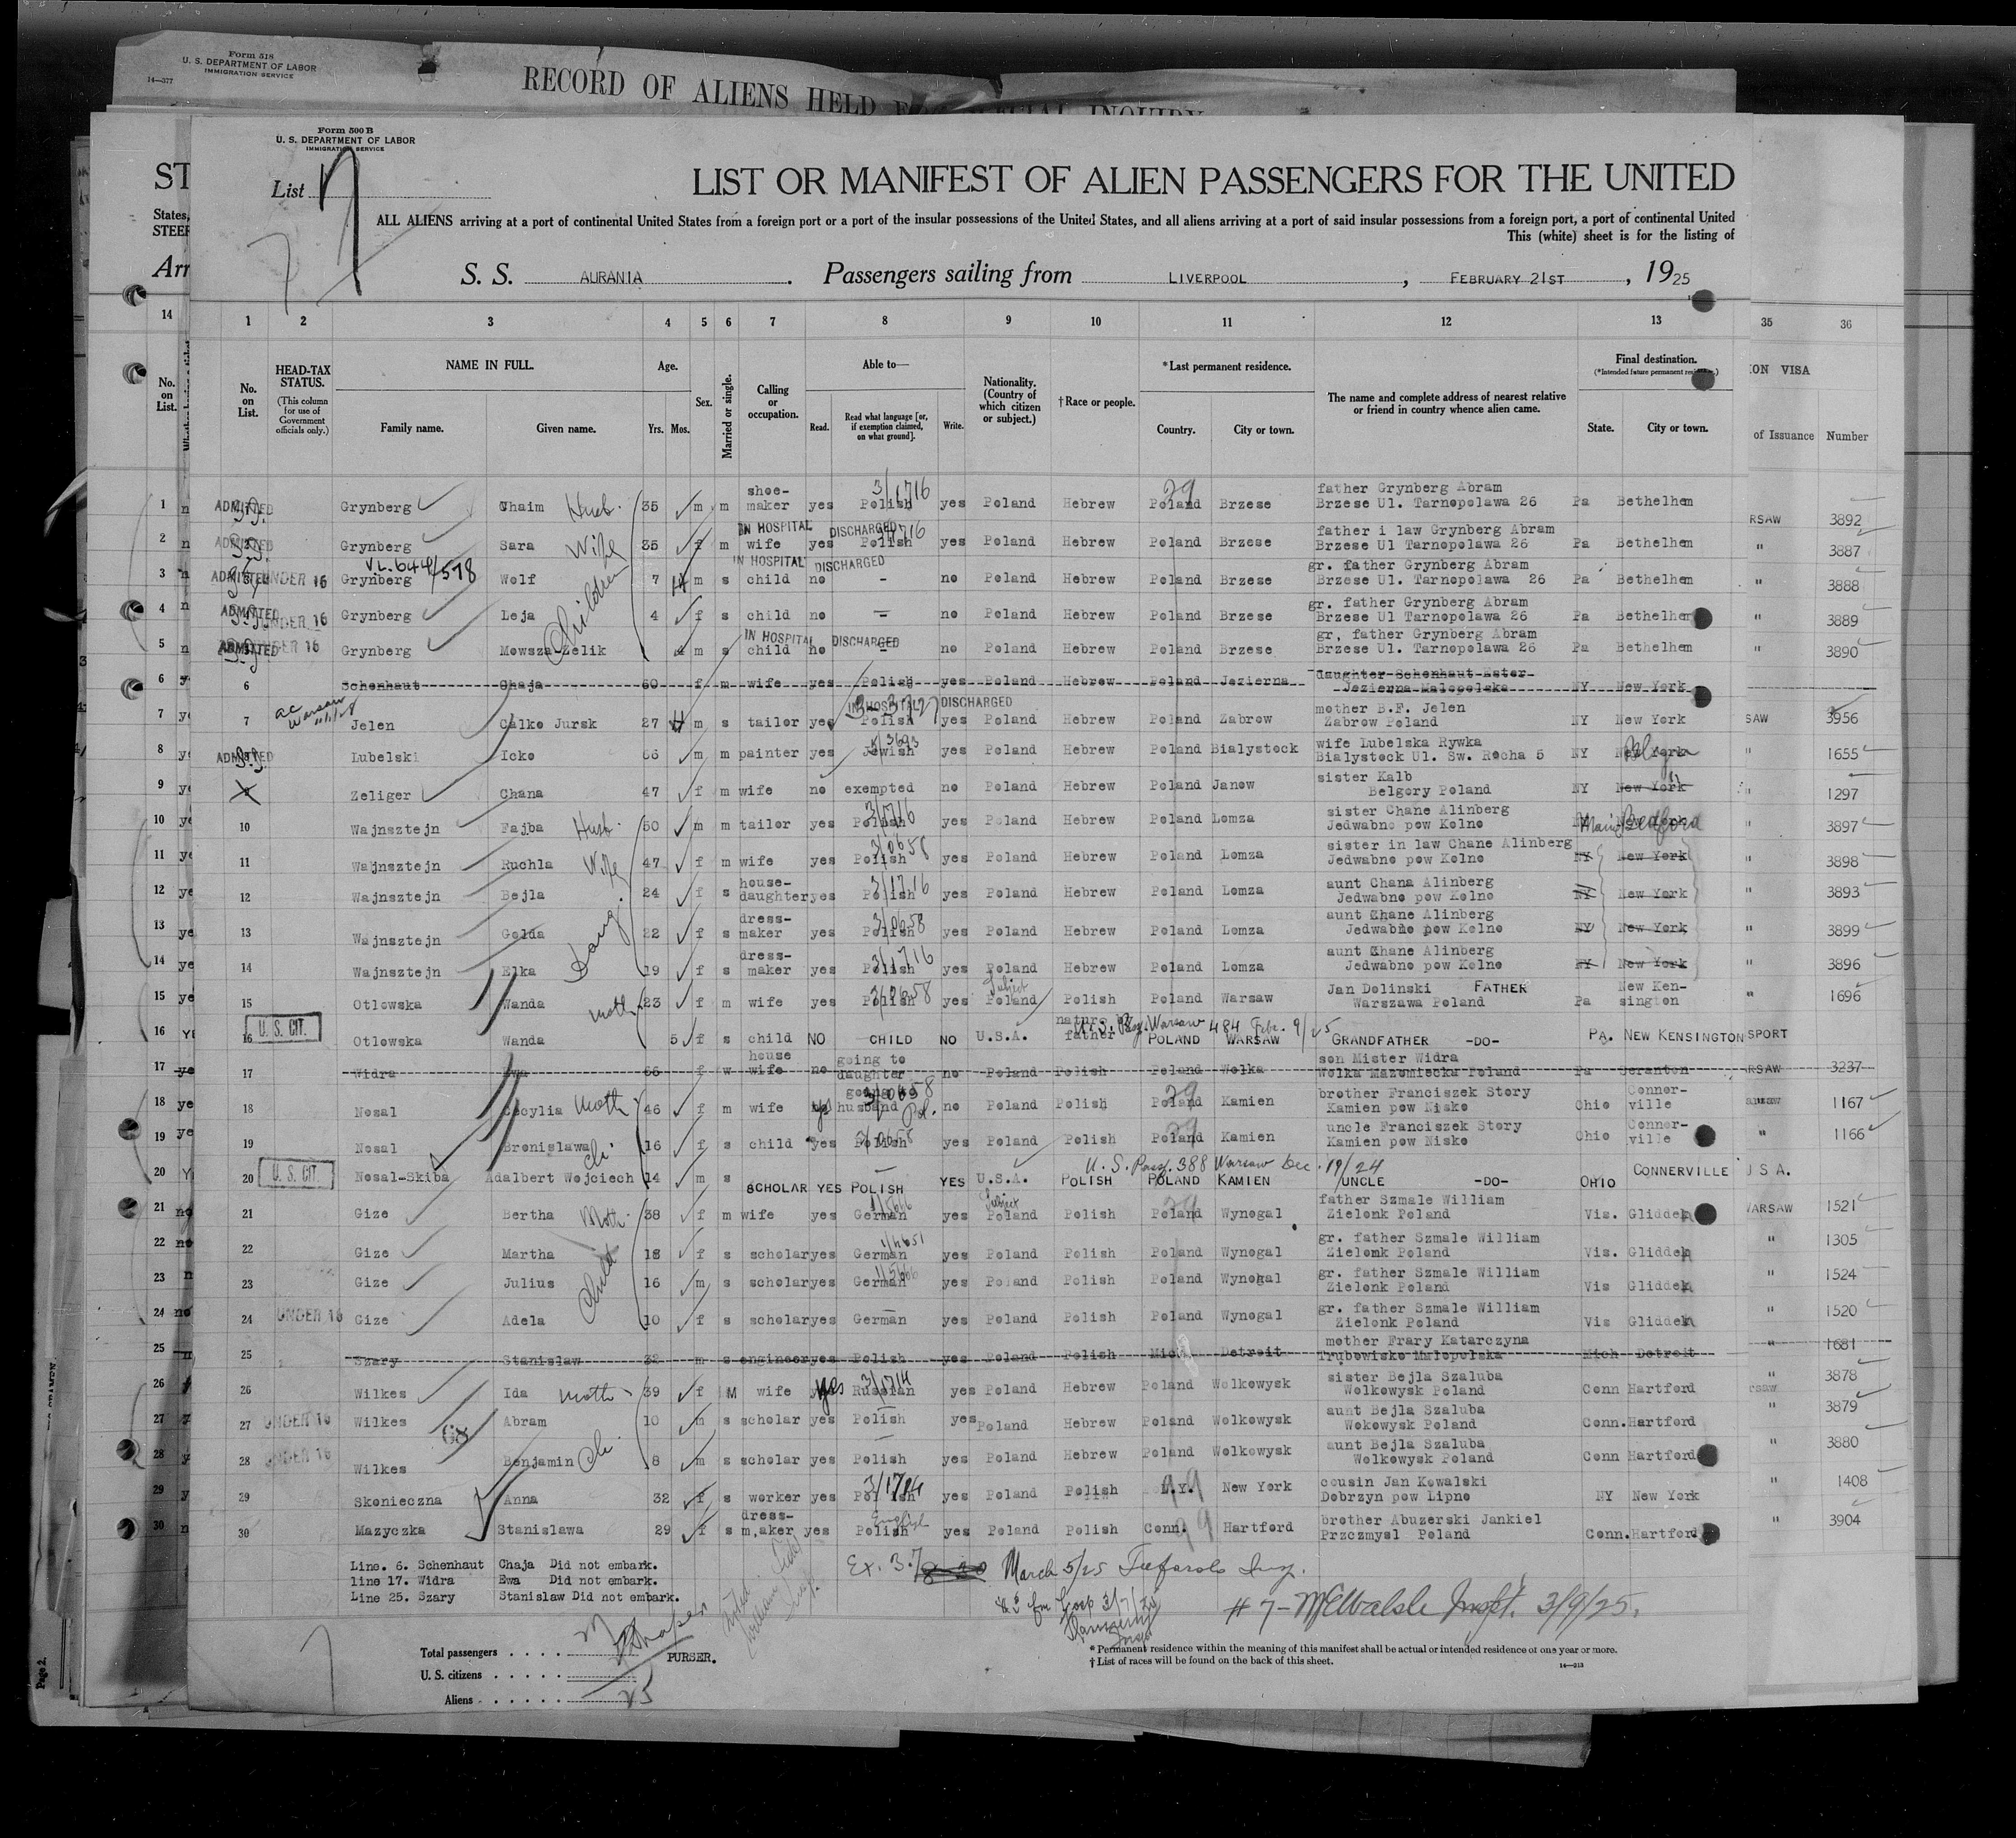 Form 518
U. S. DEPARTMENT OF LABOR
IMMIGRATION SERVICE
14—377
RECORD OF ALIENS HELD
Form 500 B
U. S. DEPARTMENT OF LABOR
IMMIGRATION SERVICE
List 7
LIST OR MANIFEST OF ALIEN PASSENGERS FOR THE UNITED
ALL ALIENS arriving at a port of continental United States from a foreign port or a port of the insular possessions of the United States, and all aliens arriving at a port of said insular possessions from a foreign port, a port of continental United
This (white) sheet is for the listing of
S. S. AURANIA. Passengers sailing from LIVERPOOL, FEBRUARY 21ST, 1925
1 2 3 4 5 6 7 8 9 10 11 12 13 35 36
No. on List.
HEAD-TAX STATUS. (This column for use of Government officials only.)
NAME IN FULL.
Family name. Given name.
Age. Yrs. Mos.
Sex.
Married or single.
Calling or occupation.
Able to—
Read. Read what language [or, if exemption claimed, on what ground]. Write.
Nationality. (Country of which citizen or subject.)
† Race or people.
* Last permanent residence.
Country. City or town.
The name and complete address of nearest relative or friend in country whence alien came.
Final destination. (*Intended future permanent residence.)
State. City or town.
ION VISA
of Issuance Number
1 ADMITTED Grynberg Chaim Husb. 35 m m shoe-maker yes Polish yes Poland Hebrew Poland Brzese father Grynberg Abram Brzese Ul. Tarnopolawa 26 Pa Bethelhem RSAW 3892
2 ADMITTED Grynberg Sara Wife 35 f m wife IN HOSPITAL DISCHARGED yes Polish yes Poland Hebrew Poland Brzese father i law Grynberg Abram Brzese Ul Tarnopolawa 26 Pa Bethelhem " 3887
3 ADMITTED UNDER 16 Grynberg Wolf 7 m s child IN HOSPITAL DISCHARGED no - no Poland Hebrew Poland Brzese gr. father Grynberg Abram Brzese Ul. Tarnopolawa 26 Pa Bethelhem " 3888
4 ADMITTED UNDER 16 Grynberg Leja Children 4 f s child no — no Poland Hebrew Poland Brzese gr. father Grynberg Abram Brzese Ul Tarnopolawa 26 Pa Bethelhem " 3889
5 ADMITTED UNDER 16 Grynberg Mowsza-Zelik m s child IN HOSPITAL DISCHARGED no - no Poland Hebrew Poland Brzese gr. father Grynberg Abram Brzese Ul. Tarnopolawa 26 Pa Bethelhem " 3890
6 Schenhaut Chaja 60 f m wife yes Polish yes Poland Hebrew Poland Jezierna daughter Schenhaut Ester Jezierna Malopolska NY New York
7 Jelen Calko Jursk 27 m s tailor yes IN HOSPITAL DISCHARGED Polish yes Poland Hebrew Poland Zabrow mother B.F. Jelen Zabrow Poland NY New York SAW 3956
8 ADMITTED Lubelski Icko 66 m m painter yes Jewish yes Poland Hebrew Poland Bialystock wife Lubelska Rywka Bialystock Ul. Sw. Rocha 5 NY New York " 1655
9 Zeliger Chana 47 f m wife no exempted no Poland Hebrew Poland Janow sister Kalb Belgory Poland NY New York " 1297
10 Wajnsztejn Fajba Husb. 50 m m tailor yes Polish yes Poland Hebrew Poland Lomza sister Chane Alinberg Jedwabne pow Kolno " 3897
11 Wajnsztejn Ruchla Wife 47 f m wife yes Polish yes Poland Hebrew Poland Lomza sister in law Chane Alinberg Jedwabno pow Kolno NY New York " 3898
12 Wajnsztejn Bejla 24 f s house-daughter yes Polish yes Poland Hebrew Poland Lomza aunt Chana Alinberg Jedwabne pow Kolno NY New York " 3893
13 Wajnsztejn Golda 22 f s dress-maker yes Polish yes Poland Hebrew Poland Lomza aunt Chane Alinberg Jedwabno pow Kolno NY New York " 3899
14 Wajnsztejn Elka 19 f s dress-maker yes Polish yes Poland Hebrew Poland Lomza aunt Chane Alinberg Jedwabno pow Kolno NY New York " 3896
15 Otlowska Wanda moth. 23 f m wife yes Polish yes Subject Poland Polish Poland Warsaw Jan Dolinski FATHER Warszawa Poland Pa New Kensington " 1696
16 U. S. CIT. Otlowska Wanda 5 f s child NO CHILD NO U.S.A. father U.S. Pass. Warsaw 484 Febr. 9/25 POLAND WARSAW GRANDFATHER -DO- PA. NEW KENSINGTON SPORT
17 Widra Ewa 66 f w house wife no going to daughter no Poland Polish Poland Wolka son Mister Widra Wolka Mazowiecka Poland Pa Scranton RSAW 3237
18 Nosal Cecylia Moth 46 f m wife yes husband Pol. no Poland Polish Poland Kamien brother Franciszek Story Kamien pow Nisko Ohio Connor-ville 1167
19 Nosal Bronislawa ch 16 f s child yes Polish yes Poland Polish Poland Kamien uncle Franciszek Story Kamien pow Nisko Ohio Connor-ville " 1166
20 U. S. CIT. Nosal-Skiba Adalbert Wojciech 14 m s SCHOLAR YES POLISH YES U.S.A. POLISH U. S. Pass. 388 Warsaw Dec. 19/24 POLAND KAMIEN UNCLE -DO- OHIO CONNERVILLE U S A.
21 Gize Bertha Moth. 38 f m wife yes German yes Subject Poland Polish Poland Wynogal father Szmale William Zielonk Poland Vis. Glidden WARSAW 1521
22 Gize Martha 18 f s scholar yes German yes Poland Polish Poland Wynogal gr. father Szmale William Zielonk Poland Vis. Glidden " 1305
23 Gize Julius Child 16 m s scholar yes German yes Poland Polish Poland Wynogal gr. father Szmale William Zielonk Poland Vis Glidden " 1524
24 UNDER 16 Gize Adela 10 f s scholar yes German yes Poland Polish Poland Wynogal gr. father Szmale William Zielonk Poland Vis Glidden " 1520
25 Szary Stanislaw 32 m s engineer yes Polish yes Poland Polish Mich Detroit mother Frary Katarczyna Trubowisko Malopolska Mich Detroit " 1681
26 Wilkes Ida Moth 39 f M wife yes Russian yes Poland Hebrew Poland Wolkowysk sister Bejla Szaluba Wolkowysk Poland Conn Hartford " 3878
27 UNDER 16 Wilkes Abram 10 m s scholar yes Polish yes Poland Hebrew Poland Wolkowysk aunt Bejla Szaluba Wokowysk Poland Conn. Hartford " 3879
28 UNDER 16 Wilkes Benjamin ch. 8 m s scholar yes Polish yes Poland Hebrew Poland Wolkowysk aunt Bejla Szaluba Wolkowysk Poland Conn Hartford " 3880
29 Skonieczna Anna 32 f s worker yes Polish yes Poland Polish N.Y. New York cousin Jan Kowalski Dobrzyn pow Lipno NY New York " 1408
30 Mazyczka Stanislawa 29 f s dress-m.aker yes Polish English yes Poland Polish Conn. Hartford brother Abuzerski Jankiel Przczmysl Poland Conn. Hartford " 3904
Line. 6. Schenhaut Chaja Did not embark.
line 17. Widra Ewa Did not embark.
Line 25. Szary Stanislaw Did not embark.
March 5/25
#7 - McWalsh Inspt. 3/9/25.
Total passengers
PURSER.
U. S. citizens
Aliens 25
* Permanent residence within the meaning of this manifest shall be actual or intended residence of one year or more.
† List of races will be found on the back of this sheet.
14—213
Page 2.